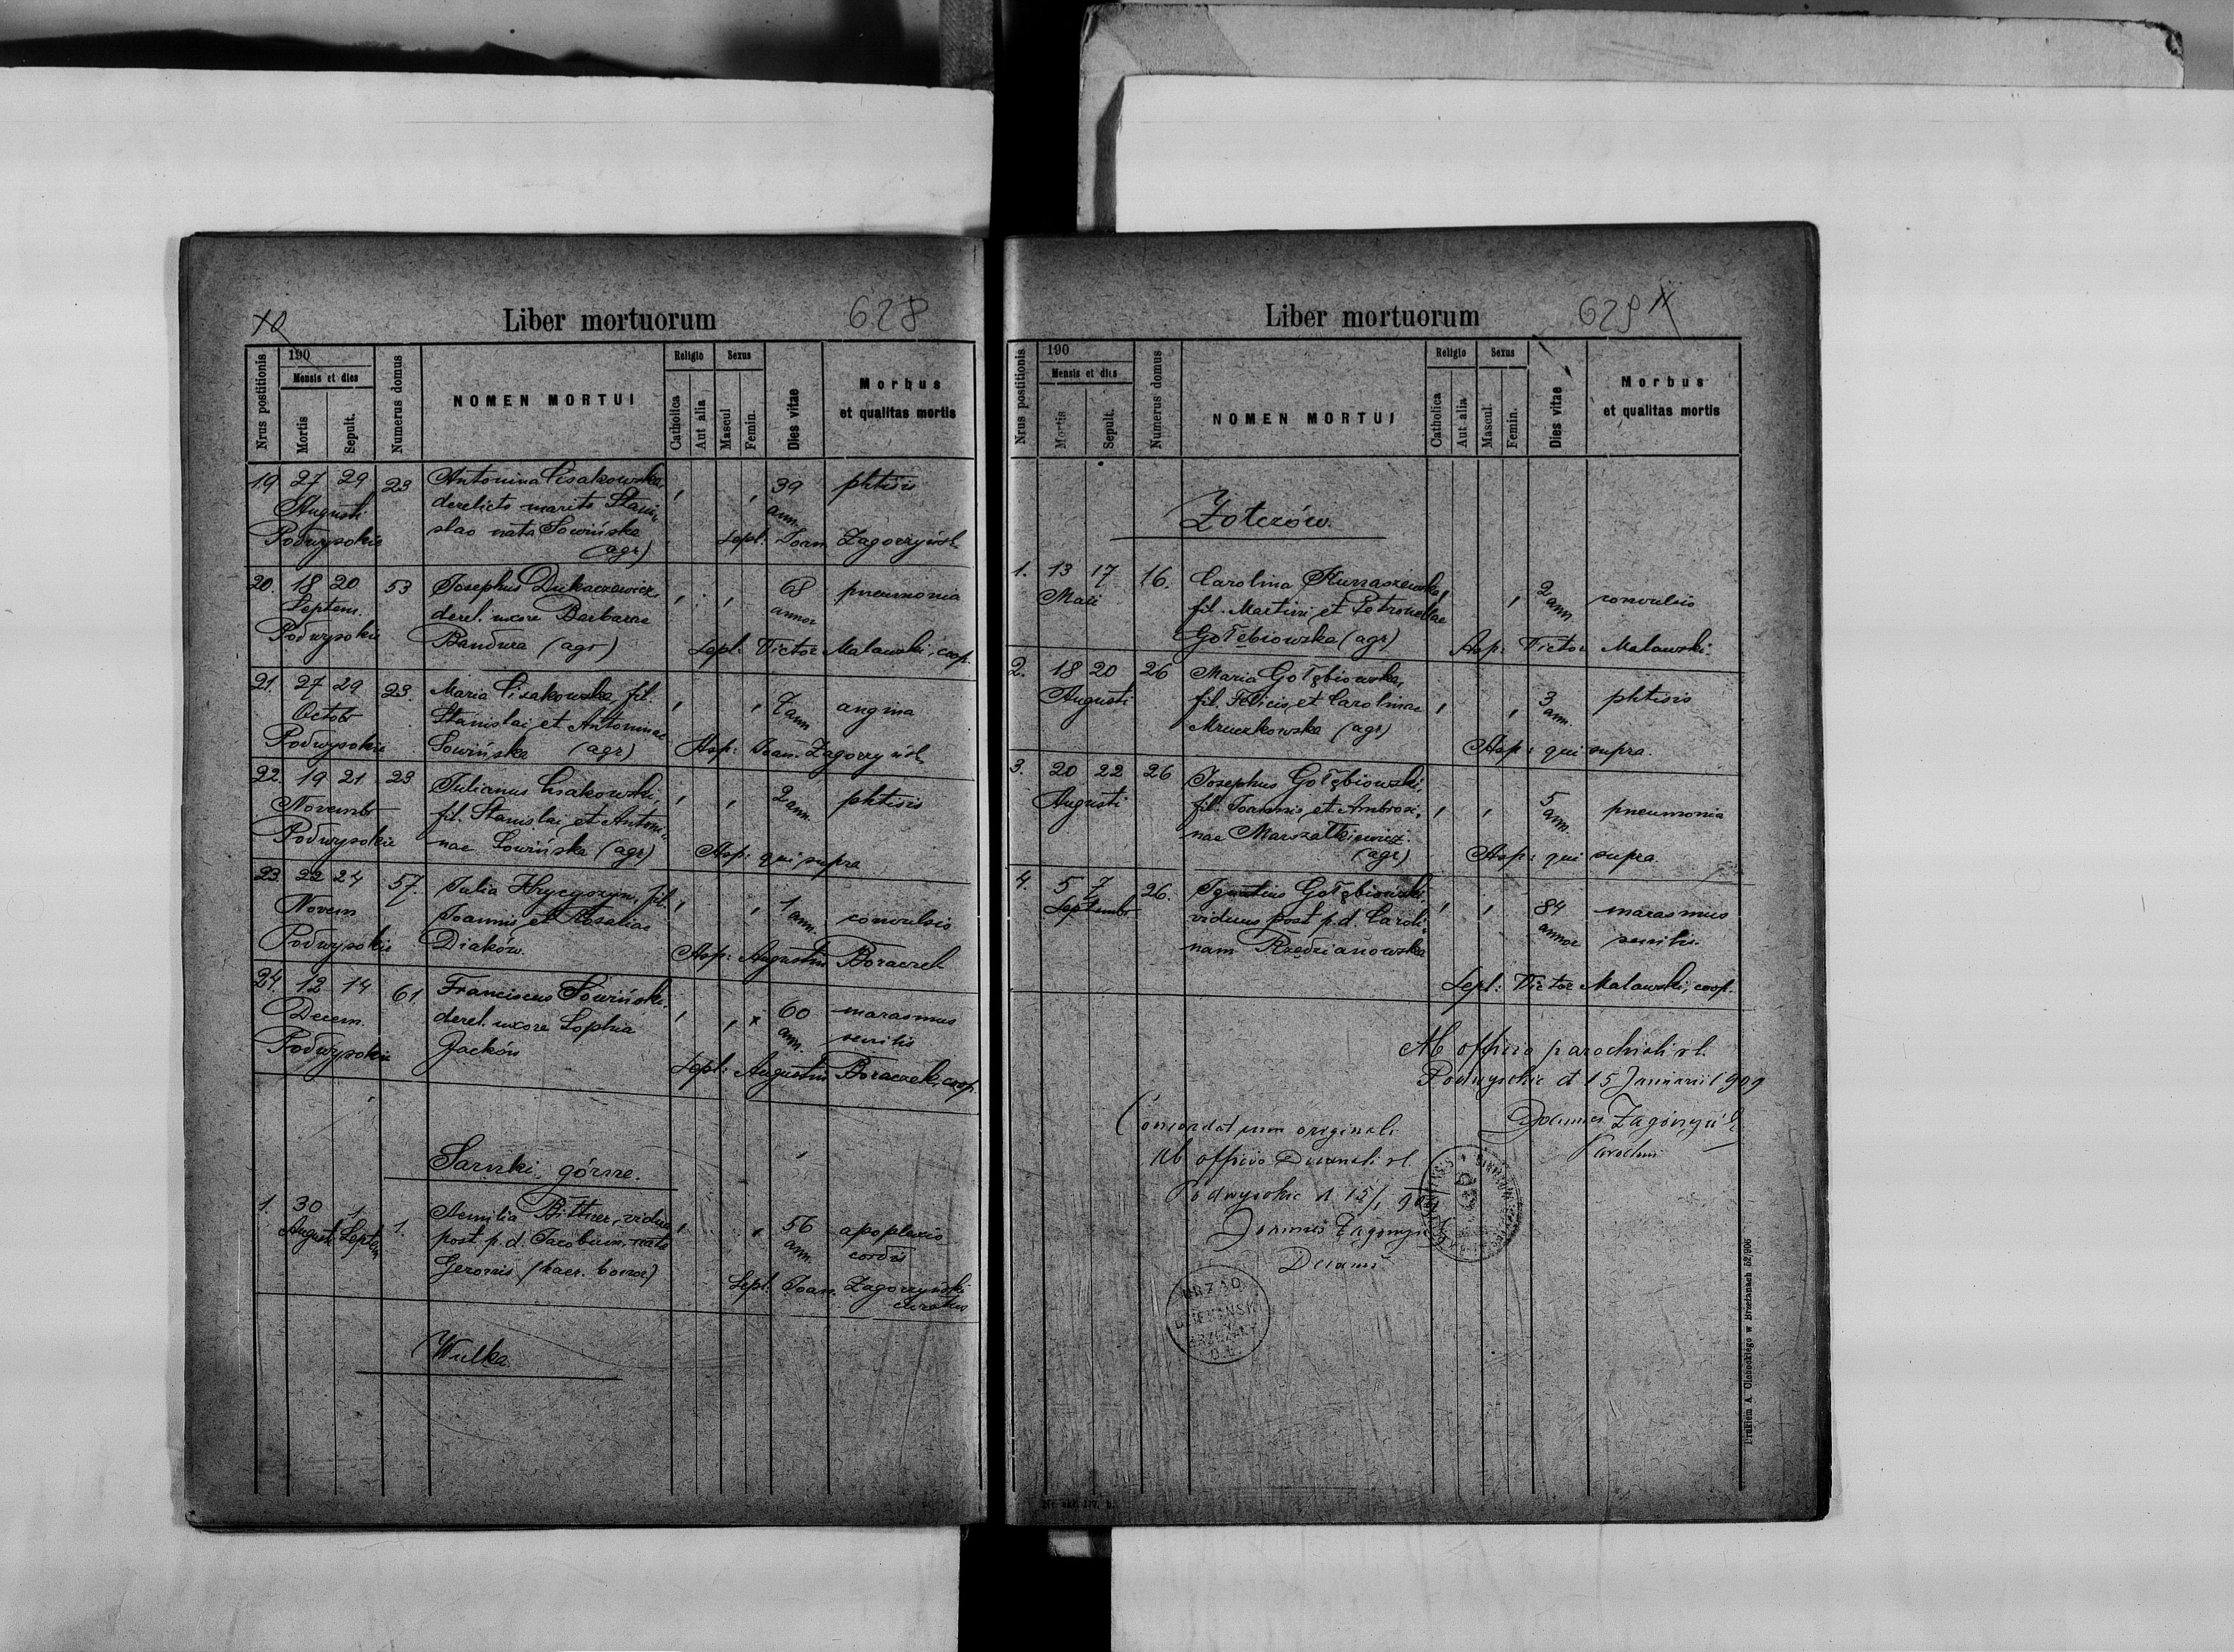 10
Liber mortuorum
628
Nrus postitionis
190
Mensis et dies
Mortis
Sepult.
Numerus domus
NOMEN MORTUI
Religio
Catholica
Aut alia
Sexus
Mascul
Femin.
Dies vitae
Morbus
et qualitas mortis
19 27 29 23 Antonina Lisakowska, 39 phtisis
Augusti derelicto marito Stani- ann.
Podwysokie slao nata Sowińska Sepl. Joan. Zagorzyńsk
(agr)
20. 18 20 53 Josephus Dukaczewicz, 68 pneumonia
Septem. derel. uxore Barbarae annor
Podwysokie Bandura (agr) Sepl: Victor Malawski, coop.
21. 27 29 23. Maria Lisakowska, fil. 7 ann angina
Octobr Stanislai et Antoninae
Podwysokie Sowińska (agr) Asp: Joan. Zagorzyńsk
22. 19 21 23 Julianus Lisakowski, 2 ann. phtisis
Novembr fil. Stanislai et Antoni-
Podwysokie nae Sowińska (agr) Asp: qui supra
23. 22 24 57. Julia Hrycyszyn, fil. 1 ann. convulsio
Novem Joannis et Rosaliae
Podwysokie Diaków. Asp: Augustin Boraczek
24. 12 14 61. Franciscus Sowiński. x 60 marasmus
Decem. derel. uxore Sophia ann. senilis
Podwysokie Jacków Sepl: Augustin Boraczek, coop.
Sarnki górne.
1. 30 1 1. Aemilia Bittner, vidua 56 apoplexio
August. Septem post p. d. Jacobum, nata ann. cordis
Geronis
Sepl. Joan. Zagorzyński
curatus
Wulka.
Liber mortuorum
629
11
Nrus postitionis
190
Mensis et dies
Mortis
Sepult.
Numerus domus
NOMEN MORTUI
Religio
Catholica
Aut alia
Sexus
Mascul.
Femin.
Dies vitae
Morbus
et qualitas mortis
Żołczów.
1. 13 17 16. Carolina 2 ann. convulsio
Maii fil. Martini et Petronellae
Gołębiowska (agr) Asp: Victor Malawski.
2. 18 20 26 Maria Gołębiowska, 3 ann. phtisis
Augusti fil. Felicis et Carolinae
Mruczkowska (agr) Asp: qui supra.
3. 20 22 26 Josephus Gołębiowski, 5 ann. pneumonia
Augusti fil. Joannis et Ambrosi-
nae Marszałkiewicz.
(agr) Asp: qui supra.
4. 5 7 26. Ignatius Gołębiowski 84 marasmus
Septembr viduus post p. d. Caroli- annor senilis
nam Rzędzianowska
Sepl: Victor Malawski, coop.
Ab officio parochiali r. l.
Podwysokie d 15 Januarii 1909
Joannes Zagórzyński
Parochus
Concordat cum originali
Ab officio Decanali r. l.
Podwysokie d 15/1 909
Joannes Zagórzyński
Decanus
URZĄD
DZIEKAŃSKI
BRZEŻANY
O. Ł.
Drukiem A. Cichockiego w Brzeżanach 52/906